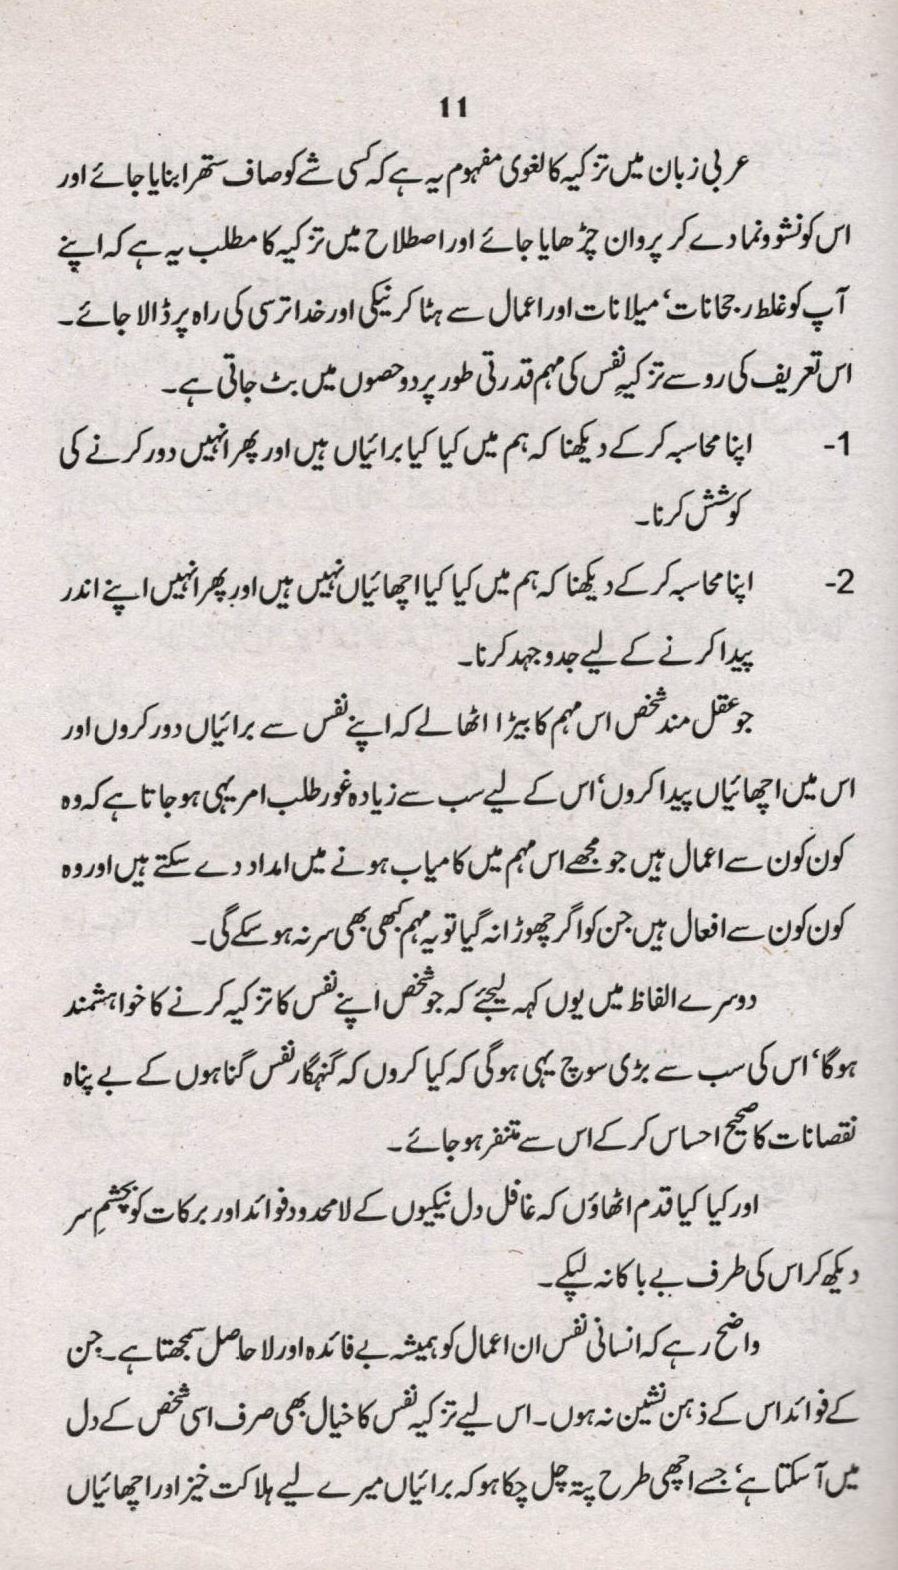 11
عربی زبان میں تزکیہ کا لغوی مفہوم یہ ہے کہ کسی شے کو صاف ستھرا بنایا جائے اور
اس کو نشوونما دے کر پروان چڑھایا جائے اور اصطلاح میں تزکیہ کا مطلب یہ ہے کہ اپنے
آپ کو غلط رجحانات‘ میلانات اور اعمال سے ہٹا کر نیکی اور خدا ترسی کی راہ پر ڈالا جائے۔
اس تعریف کی رو سے تزکیہِ نفس کی مہم قدرتی طور پر دو حصوں میں بٹ جاتی ہے۔
1- اپنا محاسبہ کر کے دیکھنا کہ ہم میں کیا کیا برائیاں ہیں اور پھر انہیں دور کرنے کی
کوشش کرنا۔
2- اپنا محاسبہ کر کے دیکھنا کہ ہم میں کیا کیا اچھائیاں نہیں ہیں اور پھر انہیں اپنے اندر
پیدا کرنے کے لیے جدوجہد کرنا۔
جو عقل مند شخص اس مہم کا بیڑا اٹھا لے کہ اپنے نفس سے برائیاں دور کروں اور
اس میں اچھائیاں پیدا کروں‘ اس کے لیے سب سے زیادہ غور طلب امر یہی ہو جاتا ہے کہ وہ
کون کون سے اعمال ہیں جو مجھے اس مہم میں کامیاب ہونے میں امداد دے سکتے ہیں اور وہ
کون کون سے افعال ہیں جن کو اگر چھوڑا نہ گیا تو یہ مہم کبھی بھی سر نہ ہو سکے گی۔
دوسرے الفاظ میں یوں کہہ لیجئے کہ جو شخص اپنے نفس کا تزکیہ کرنے کا خواہشمند
ہوگا‘ اس کی سب سے بڑی سوچ یہی ہوگی کہ کیا کروں کہ گنہگار نفس گناہوں کے بے پناہ
نقصانات کا صحیح احساس کر کے اس سے متنفر ہو جائے۔
اور کیا کیا قدم اٹھاؤں کہ غافل دل نیکیوں کے لامحدود فوائد اور برکات کو بچشمِ سر
دیکھ کر اس کی طرف بے باکانہ لپکے۔
واضح رہے کہ انسانی نفس ان اعمال کو ہمیشہ بے فائدہ اور لاحاصل سمجھتا ہے۔ جن
کے فوائد اس کے ذہن نشین نہ ہوں۔ اس لیے تزکیہ نفس کا خیال بھی صرف اسی شخص کے دل
میں آ سکتا ہے‘ جسے اچھی طرح پتہ چل چکا ہو کہ برائیاں میرے لیے ہلاکت خیز اور اچھائیاں